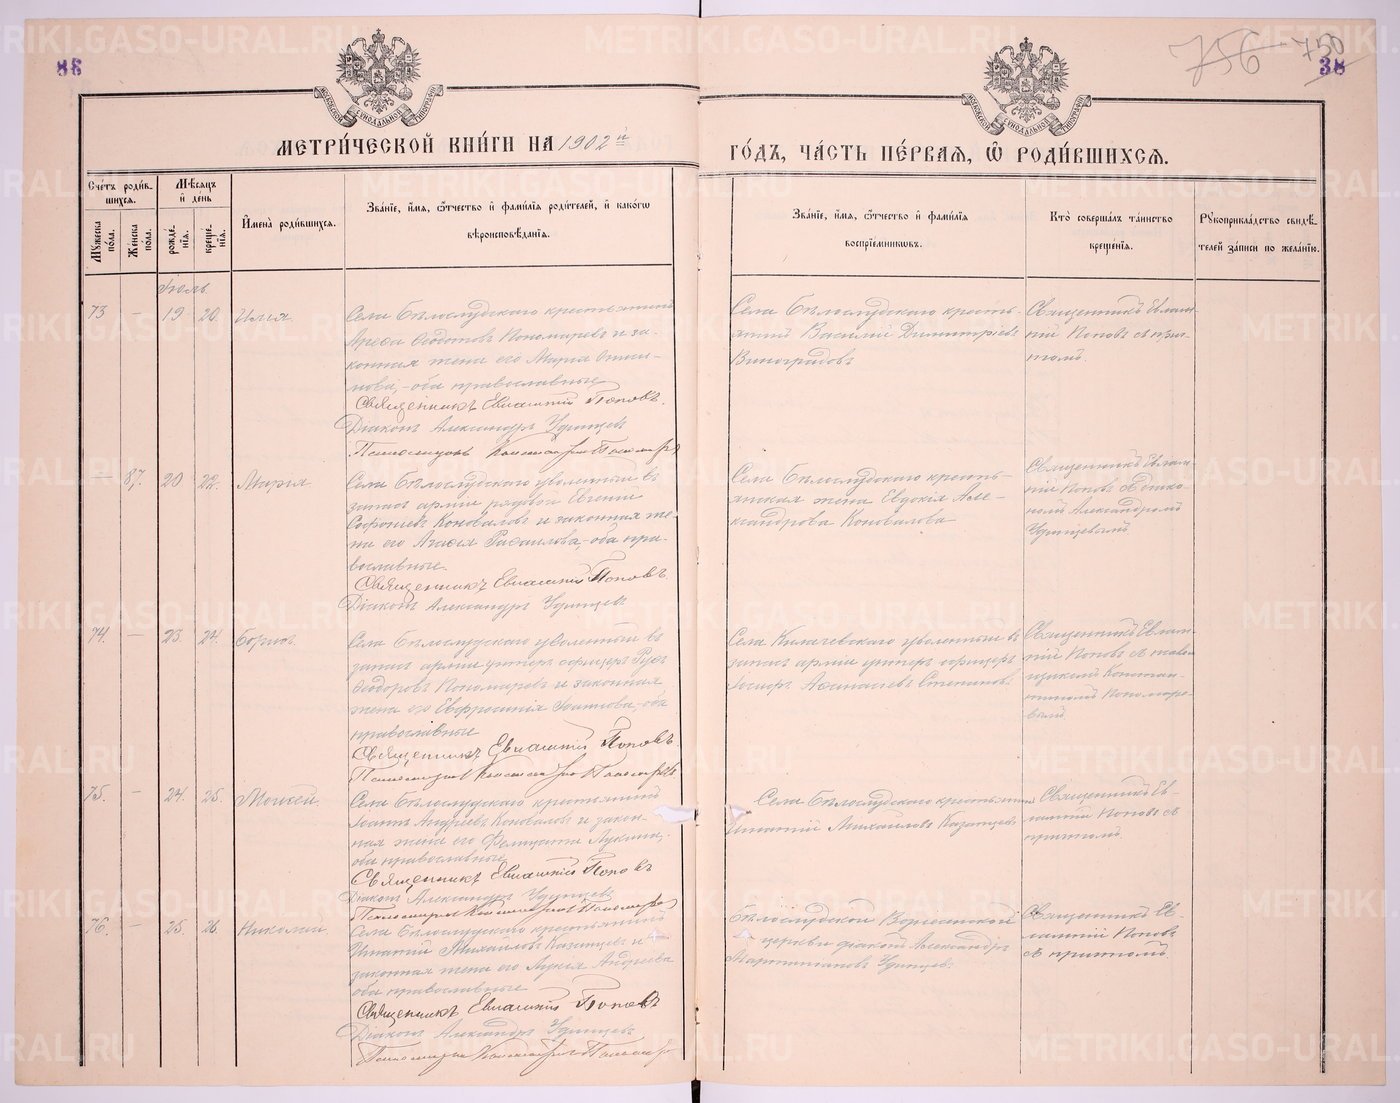 88
756 750
38
МЕТРИ́ЧЕСКОЙ КНИ́ГИ НА 1902 й
ГО́ДЪ, ЧА́СТЬ ПЕ́РВАЯ, Ѽ РОДИ́ВШИХСЯ.
Сче́тъ роди́в-
шихся.
Мѣ́сяцъ
и де́нь
Мꙋ́жеска по́ла.
Же́нска по́ла.
рожде́-
нїя.
креще́-
нїя.
Имена̀ роди́вшихся.
Зва́нїе, и́мя, ѻ́тчество и фами́лїя роди́телей, и како́гѡ
вѣроисповѣ́данїя.
Зва́нїе, и́мя, ѻ́тчество и фами́лїя
воспрїе́мникѡвъ.
Кто̀ соверша́лъ та́инство
креще́нїя.
Рꙋкоприкла́дство свидѣ́-
телей за́писи по жела́нїю.
Іюль
73 - 19 20. Илія
Села Бѣлослудскаго крестьянинъ
Ѳедотовъ Пономаревъ и за-
конная жена его Марія
оба православные
Священникъ Евлампій Поповъ.
Діаконъ Александръ Удинцевъ
Псаломщикъ Константинъ Пономаревъ
Села Бѣлослудскаго кресть-
янинъ Василій Димитріевъ
Виноградовъ
Священникъ Евлам-
пій Поповъ съ прич-
томъ
- 87. 20 22. Марія
Села Бѣлослудскаго уволенный въ
запасъ арміи рядовой Евгеній
Софоніевъ Коноваловъ и законная же-
на его Агаѳія Рафаилова, оба пра-
вославные.
Священникъ Евлампій Поповъ.
Діаконъ Александръ Удинцевъ
Села Бѣлослудскаго кресть-
янская жена Евдокія Але-
ксандрова Коновалова
Священникъ Евлам-
пій Поповъ съ діако-
номъ Александромъ
Удинцевымъ
74. - 23. 24. Борисъ
Села Бѣлослудскаго уволенный въ
запасъ арміи унтеръ офицеръ
Ѳеодоровъ Пономаревъ и законная
жена его Евфросинія Іоаннова, оба
православные
Священникъ Евлампій Поповъ.
Псаломщикъ Константинъ Пономаревъ
Села Килачевскаго уволенный въ
запасъ арміи унтеръ офицеръ
Іосифъ Аѳанасіевъ Степановъ.
Священникъ Евлам-
пій Поповъ съ псалом-
щикомъ Констан-
тиномъ Пономаре-
вымъ
75. - 24. 25. Моисей
Села Бѣлослудскаго крестьянинъ
Іоаннъ Андреевъ Коноваловъ и закон-
ная жена его Фелицата Лукина,
оба православные
Священникъ Евлампій Поповъ
Діаконъ Александръ Удинцевъ
Псаломщикъ Константинъ Пономаревъ
Села Бѣлослудскаго крестьянинъ
Игнатій Михаиловъ Казанцевъ
Священникъ Ев-
лампій Поповъ съ
причтомъ
76. - 25. 26. Николай
Села Бѣлослудскаго крестьянинъ
Игнатій Михаиловъ Казанцевъ и
законная жена его Лукія Андреева
оба православные
Священникъ Евлампій Поповъ
Діаконъ Александръ Удинцевъ
Псаломщикъ Константинъ Пономаревъ
Бѣлослудской Вознесенской
церкви діаконъ Александръ
Удинцевъ.
Священникъ Ев-
лампій Поповъ
съ причтомъ.